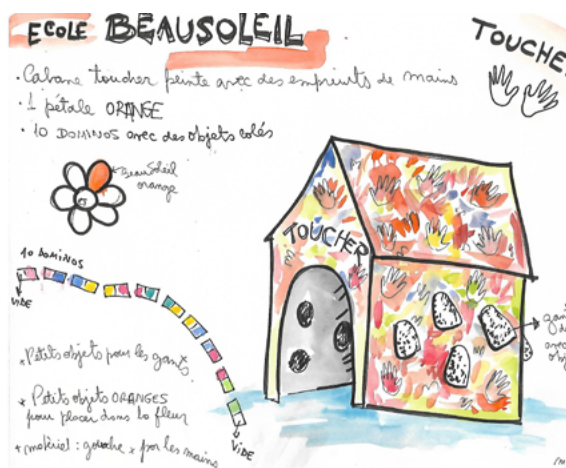 ECOLE BEAUSOLEIL
TOUCHE
· Cabane toucher peinte avec des empreints de mains
· 1 pétale ORANGE
· 10 DOMINOS avec des objets colés
BeauSoleil
orange
TOUCHER
10 DOMINOS
VIDE
gan
d
avec
obj
* Petits objets pour les gants
* Petits objets ORANGES
pour placer dans la fleur
+ matériel : gouache x por les mains
VIDE